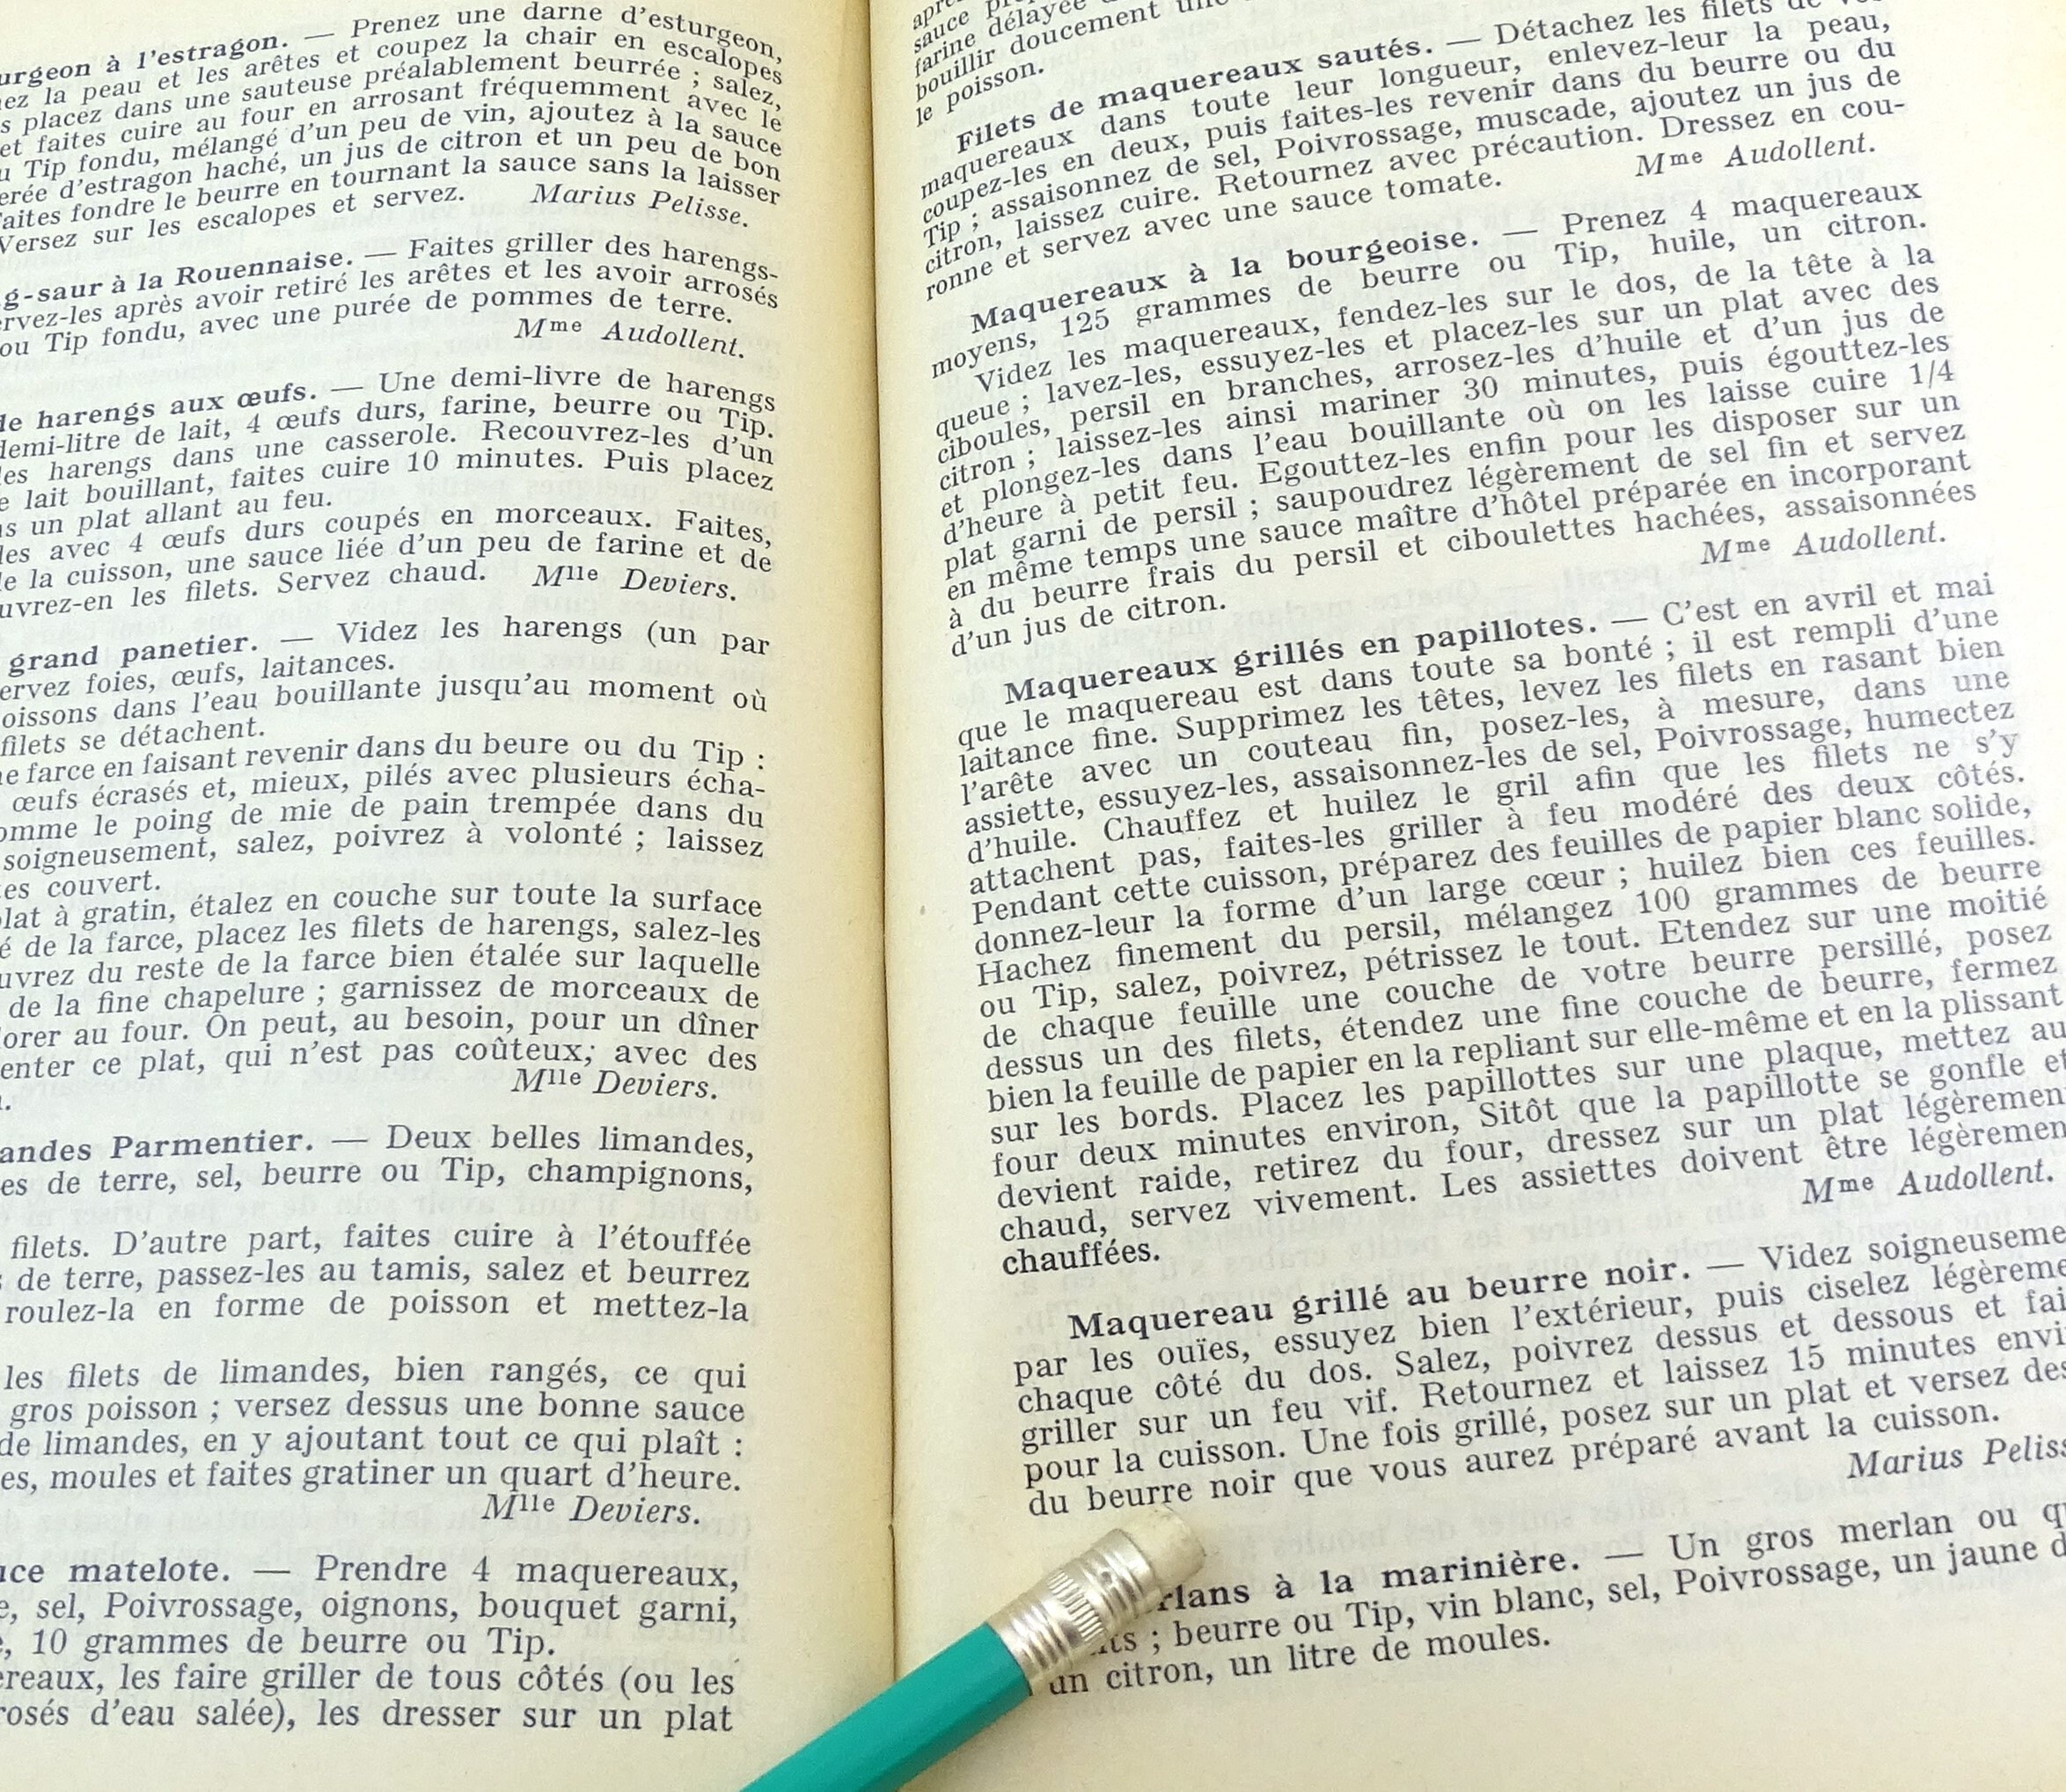 urgeon à l'estragon. — Prenez une darne d'esturgeon,
ez la peau et les arêtes et coupez la chair en escalopes
s placez dans une sauteuse préalablement beurrée ; salez,
et faites cuire au four en arrosant fréquemment avec le
u Tip fondu, mélangé d'un peu de vin, ajoutez à la sauce
erée d'estragon haché, un jus de citron et un peu de bon
faites fondre le beurre en tournant la sauce sans la laisser
Versez sur les escalopes et servez. Marius Pelisse.
g-saur à la Rouennaise. — Faites griller des harengs-
ervez-les après avoir retiré les arêtes et les avoir arrosés
ou Tip fondu, avec une purée de pommes de terre.
Mme Audollent.
de harengs aux œufs. — Une demi-livre de harengs
demi-litre de lait, 4 œufs durs, farine, beurre ou Tip.
les harengs dans une casserole. Recouvrez-les d'un
e lait bouillant, faites cuire 10 minutes. Puis placez
s un plat allant au feu.
les avec 4 œufs durs coupés en morceaux. Faites,
le la cuisson, une sauce liée d'un peu de farine et de
uvrez-en les filets. Servez chaud. Mlle Deviers.
grand panetier. — Videz les harengs (un par
ervez foies, œufs, laitances.
oissons dans l'eau bouillante jusqu'au moment où
filets se détachent.
ne farce en faisant revenir dans du beure ou du Tip :
œufs écrasés et, mieux, pilés avec plusieurs écha-
omme le poing de mie de pain trempée dans du
soigneusement, salez, poivrez à volonté ; laissez
tes couvert.
plat à gratin, étalez en couche sur toute la surface
é de la farce, placez les filets de harengs, salez-les
uvrez du reste de la farce bien étalée sur laquelle
de la fine chapelure ; garnissez de morceaux de
lorer au four. On peut, au besoin, pour un dîner
enter ce plat, qui n'est pas coûteux; avec des
Mlle Deviers.
andes Parmentier. — Deux belles limandes,
es de terre, sel, beurre ou Tip, champignons,
filets. D'autre part, faites cuire à l'étouffée
s de terre, passez-les au tamis, salez et beurrez
roulez-la en forme de poisson et mettez-la
les filets de limandes, bien rangés, ce qui
gros poisson ; versez dessus une bonne sauce
de limandes, en y ajoutant tout ce qui plaît :
es, moules et faites gratiner un quart d'heure.
Mlle Deviers.
uce matelote. — Prendre 4 maquereaux,
e, sel, Poivrossage, oignons, bouquet garni,
e, 10 grammes de beurre ou Tip.
ereaux, les faire griller de tous côtés (ou les
rosés d'eau salée), les dresser sur un plat
farine délayée
bouillir doucement
le poisson.
Filets de maquereaux sautés. — Détachez les filets de
maquereaux dans toute leur longueur, enlevez-leur la peau,
coupez-les en deux, puis faites-les revenir dans du beurre ou du
Tip ; assaisonnez de sel, Poivrossage, muscade, ajoutez un jus de
citron, laissez cuire. Retournez avec précaution. Dressez en cou-
ronne et servez avec une sauce tomate. Mme Audollent.
Maquereaux à la bourgeoise. — Prenez 4 maquereaux
moyens, 125 grammes de beurre ou Tip, huile, un citron.
Videz les maquereaux, fendez-les sur le dos, de la tête à la
queue ; lavez-les, essuyez-les et placez-les sur un plat avec des
ciboules, persil en branches, arrosez-les d'huile et d'un jus de
citron ; laissez-les ainsi mariner 30 minutes, puis égouttez-les
et plongez-les dans l'eau bouillante où on les laisse cuire 1/4
d'heure à petit feu. Egouttez-les enfin pour les disposer sur un
plat garni de persil ; saupoudrez légèrement de sel fin et servez
en même temps une sauce maître d'hôtel préparée en incorporant
à du beurre frais du persil et ciboulettes hachées, assaisonnées
d'un jus de citron. Mme Audollent.
Maquereaux grillés en papillotes. — C'est en avril et mai
que le maquereau est dans toute sa bonté ; il est rempli d'une
laitance fine. Supprimez les têtes, levez les filets en rasant bien
l'arête avec un couteau fin, posez-les, à mesure, dans une
assiette, essuyez-les, assaisonnez-les de sel, Poivrossage, humectez
d'huile. Chauffez et huilez le gril afin que les filets ne s'y
attachent pas, faites-les griller à feu modéré des deux côtés.
Pendant cette cuisson, préparez des feuilles de papier blanc solide,
donnez-leur la forme d'un large cœur ; huilez bien ces feuilles.
Hachez finement du persil, mélangez 100 grammes de beurre
ou Tip, salez, poivrez, pétrissez le tout. Etendez sur une moitié
de chaque feuille une couche de votre beurre persillé, posez
dessus un des filets, étendez une fine couche de beurre, fermez
bien la feuille de papier en la repliant sur elle-même et en la plissant
sur les bords. Placez les papillottes sur une plaque, mettez au
four deux minutes environ, Sitôt que la papillotte se gonfle et
devient raide, retirez du four, dressez sur un plat légèremen
chaud, servez vivement. Les assiettes doivent être légèremen
chauffées. Mme Audollent.
Maquereau grillé au beurre noir. — Videz soigneuseme
par les ouïes, essuyez bien l'extérieur, puis ciselez légèreme
chaque côté du dos. Salez, poivrez dessus et dessous et fai
griller sur un feu vif. Retournez et laissez 15 minutes envi
pour la cuisson. Une fois grillé, posez sur un plat et versez des
du beurre noir que vous aurez préparé avant la cuisson.
Marius Peliss
rlans à la marinière. — Un gros merlan ou qu
ts ; beurre ou Tip, vin blanc, sel, Poivrossage, un jaune d
un citron, un litre de moules.